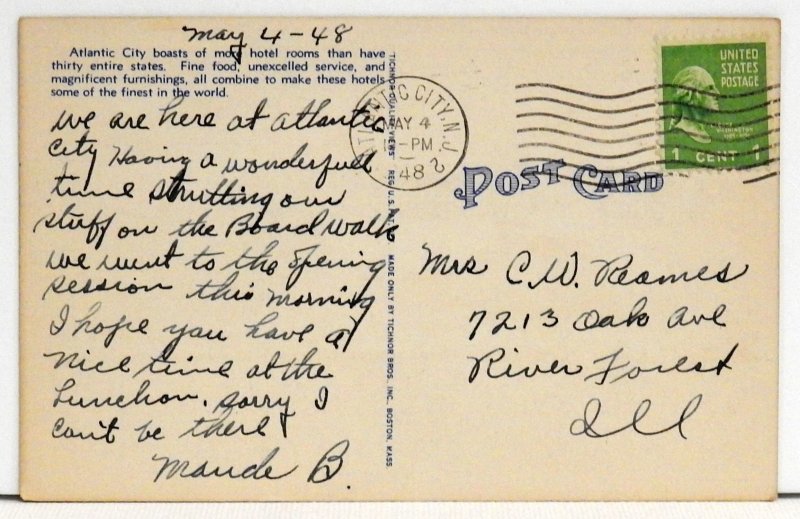 May 4-48
Atlantic City boasts of more hotel rooms than have
thirty entire states. Fine food, unexcelled service, and
magnificent furnishings, all combine to make these hotels
some of the finest in the world.
We are here at atlantic
City Having a wonderfull
time strutting our
stuff on the Board walk
we went to the opening
session this morning
I hope you have a
nice time at the
Lunchon. sorry I
can't be there
Maude B.
TICHNOR QUALITY VIEWS REG. U.S. PAT. MADE ONLY BY TICHNOR BROS. INC., BOSTON, MASS
ATLANTIC CITY, N.J.
MAY 4
PM
48
2
UNITED
STATES
POSTAGE
WASHINGTON
1 CENT 1
POST CARD
Mrs C. W. Reames
7213 Oak Ave
River Forest
Ill